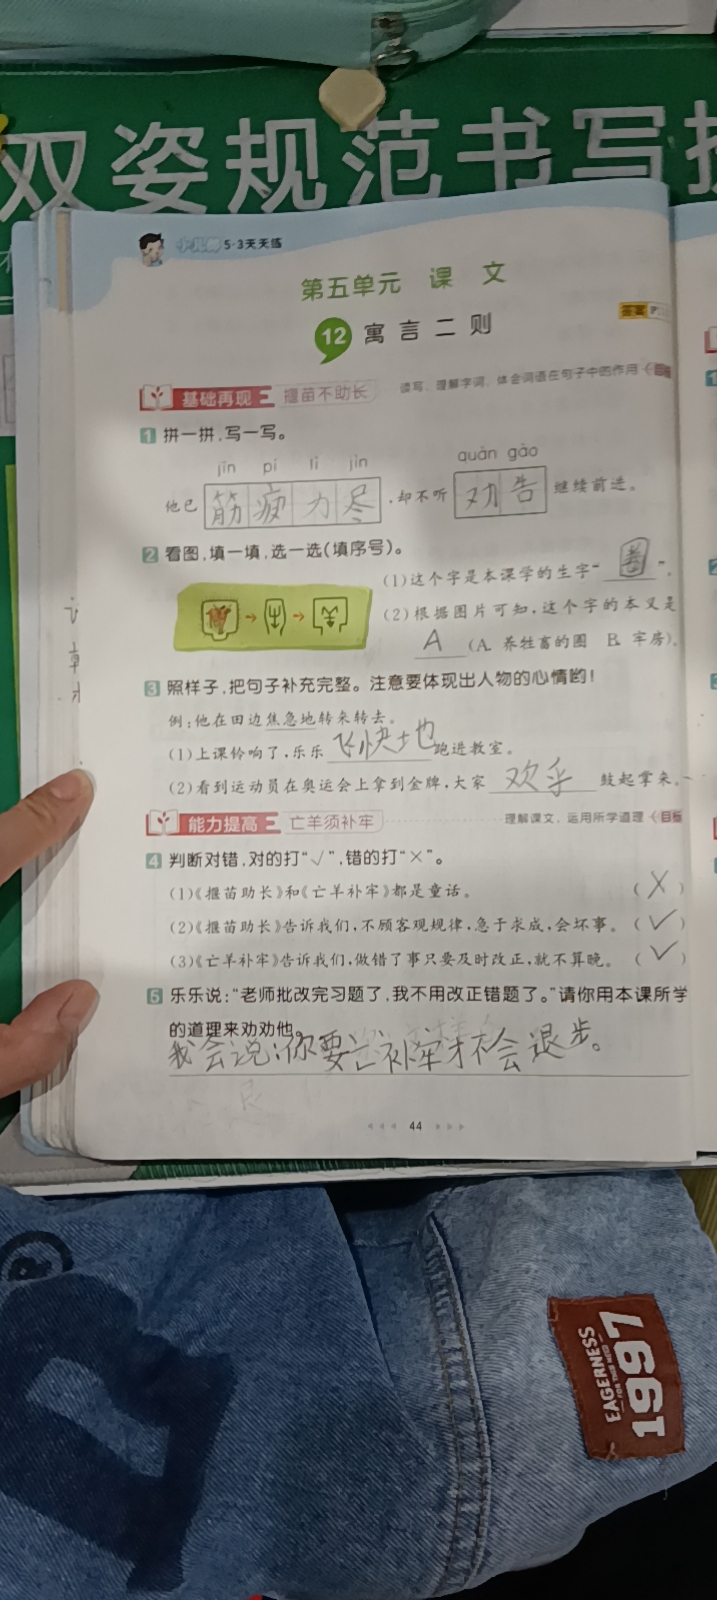 双姿规范书写
小儿郎 5·3天天练
第五单元 课 文
12 寓言二则
答案 P
基础再现 揠苗不助长 读写、理解字词,体会词语在句子中的作用 目标
1 拼一拼,写一写。
jīn pí lì jìn quàn gào
他已 筋疲力尽 ,却不听 劝告 继续前进。
2 看图,填一填,选一选(填序号)。
(1)这个字是本课学的生字“圈”。
(2)根据图片可知,这个字的本义是
A (A. 养牲畜的圈 B. 牢房)。
3 照样子,把句子补充完整。注意要体现出人物的心情哟!
例:他在田边焦急地转来转去。
(1)上课铃响了,乐乐飞快地跑进教室。
(2)看到运动员在奥运会上拿到金牌,大家欢乎鼓起掌来。
能力提高 亡羊须补牢 理解课文,运用所学道理 目标
4 判断对错,对的打“√”,错的打“×”。
(1)《揠苗助长》和《亡羊补牢》都是童话。 (×)
(2)《揠苗助长》告诉我们,不顾客观规律,急于求成,会坏事。 (√)
(3)《亡羊补牢》告诉我们,做错了事只要及时改正,就不算晚。 (√)
5 乐乐说:“老师批改完习题了,我不用改正错题了。”请你用本课所学
的道理来劝劝他。
我会说:你要亡补牢才不会退步。
44
EAGERNESS
FOR THEIR NEED
1997